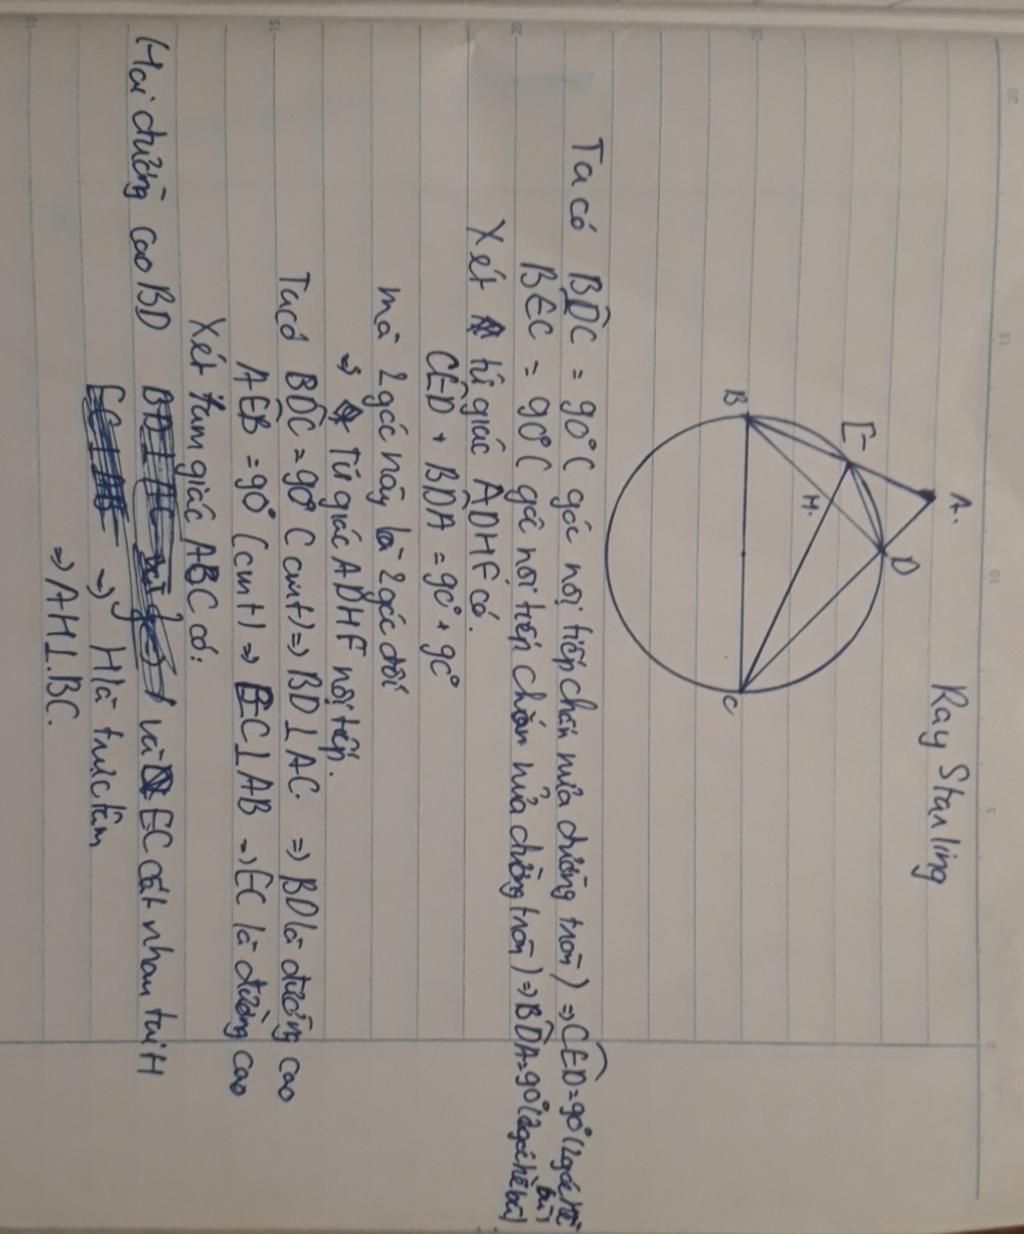 Ray Stanling
A.
E
D
H.
B
C
Ta có BDC = 90° (góc nội tiếp chắn nửa đường tròn) => CED = 90° (2 góc kề bù)
BEC = 90° (góc nội tiếp chắn nửa đường tròn) => BDA = 90° (2 góc kề bù)
Xét tứ giác ADHE có.
CED + BDA = 90° + 90°
mà 2 góc này là 2 góc đối
=> Tứ giác ADHE nội tiếp.
Ta có BDC = 90° (cmt) => BD ⊥ AC. => BD là đường cao
AEB = 90° (cmt) => EC ⊥ AB => EC là đường cao
Xét tam giác ABC có:
Hai đường cao BD và EC cắt nhau tại H
=> H là trực tâm
=> AH ⊥ BC.